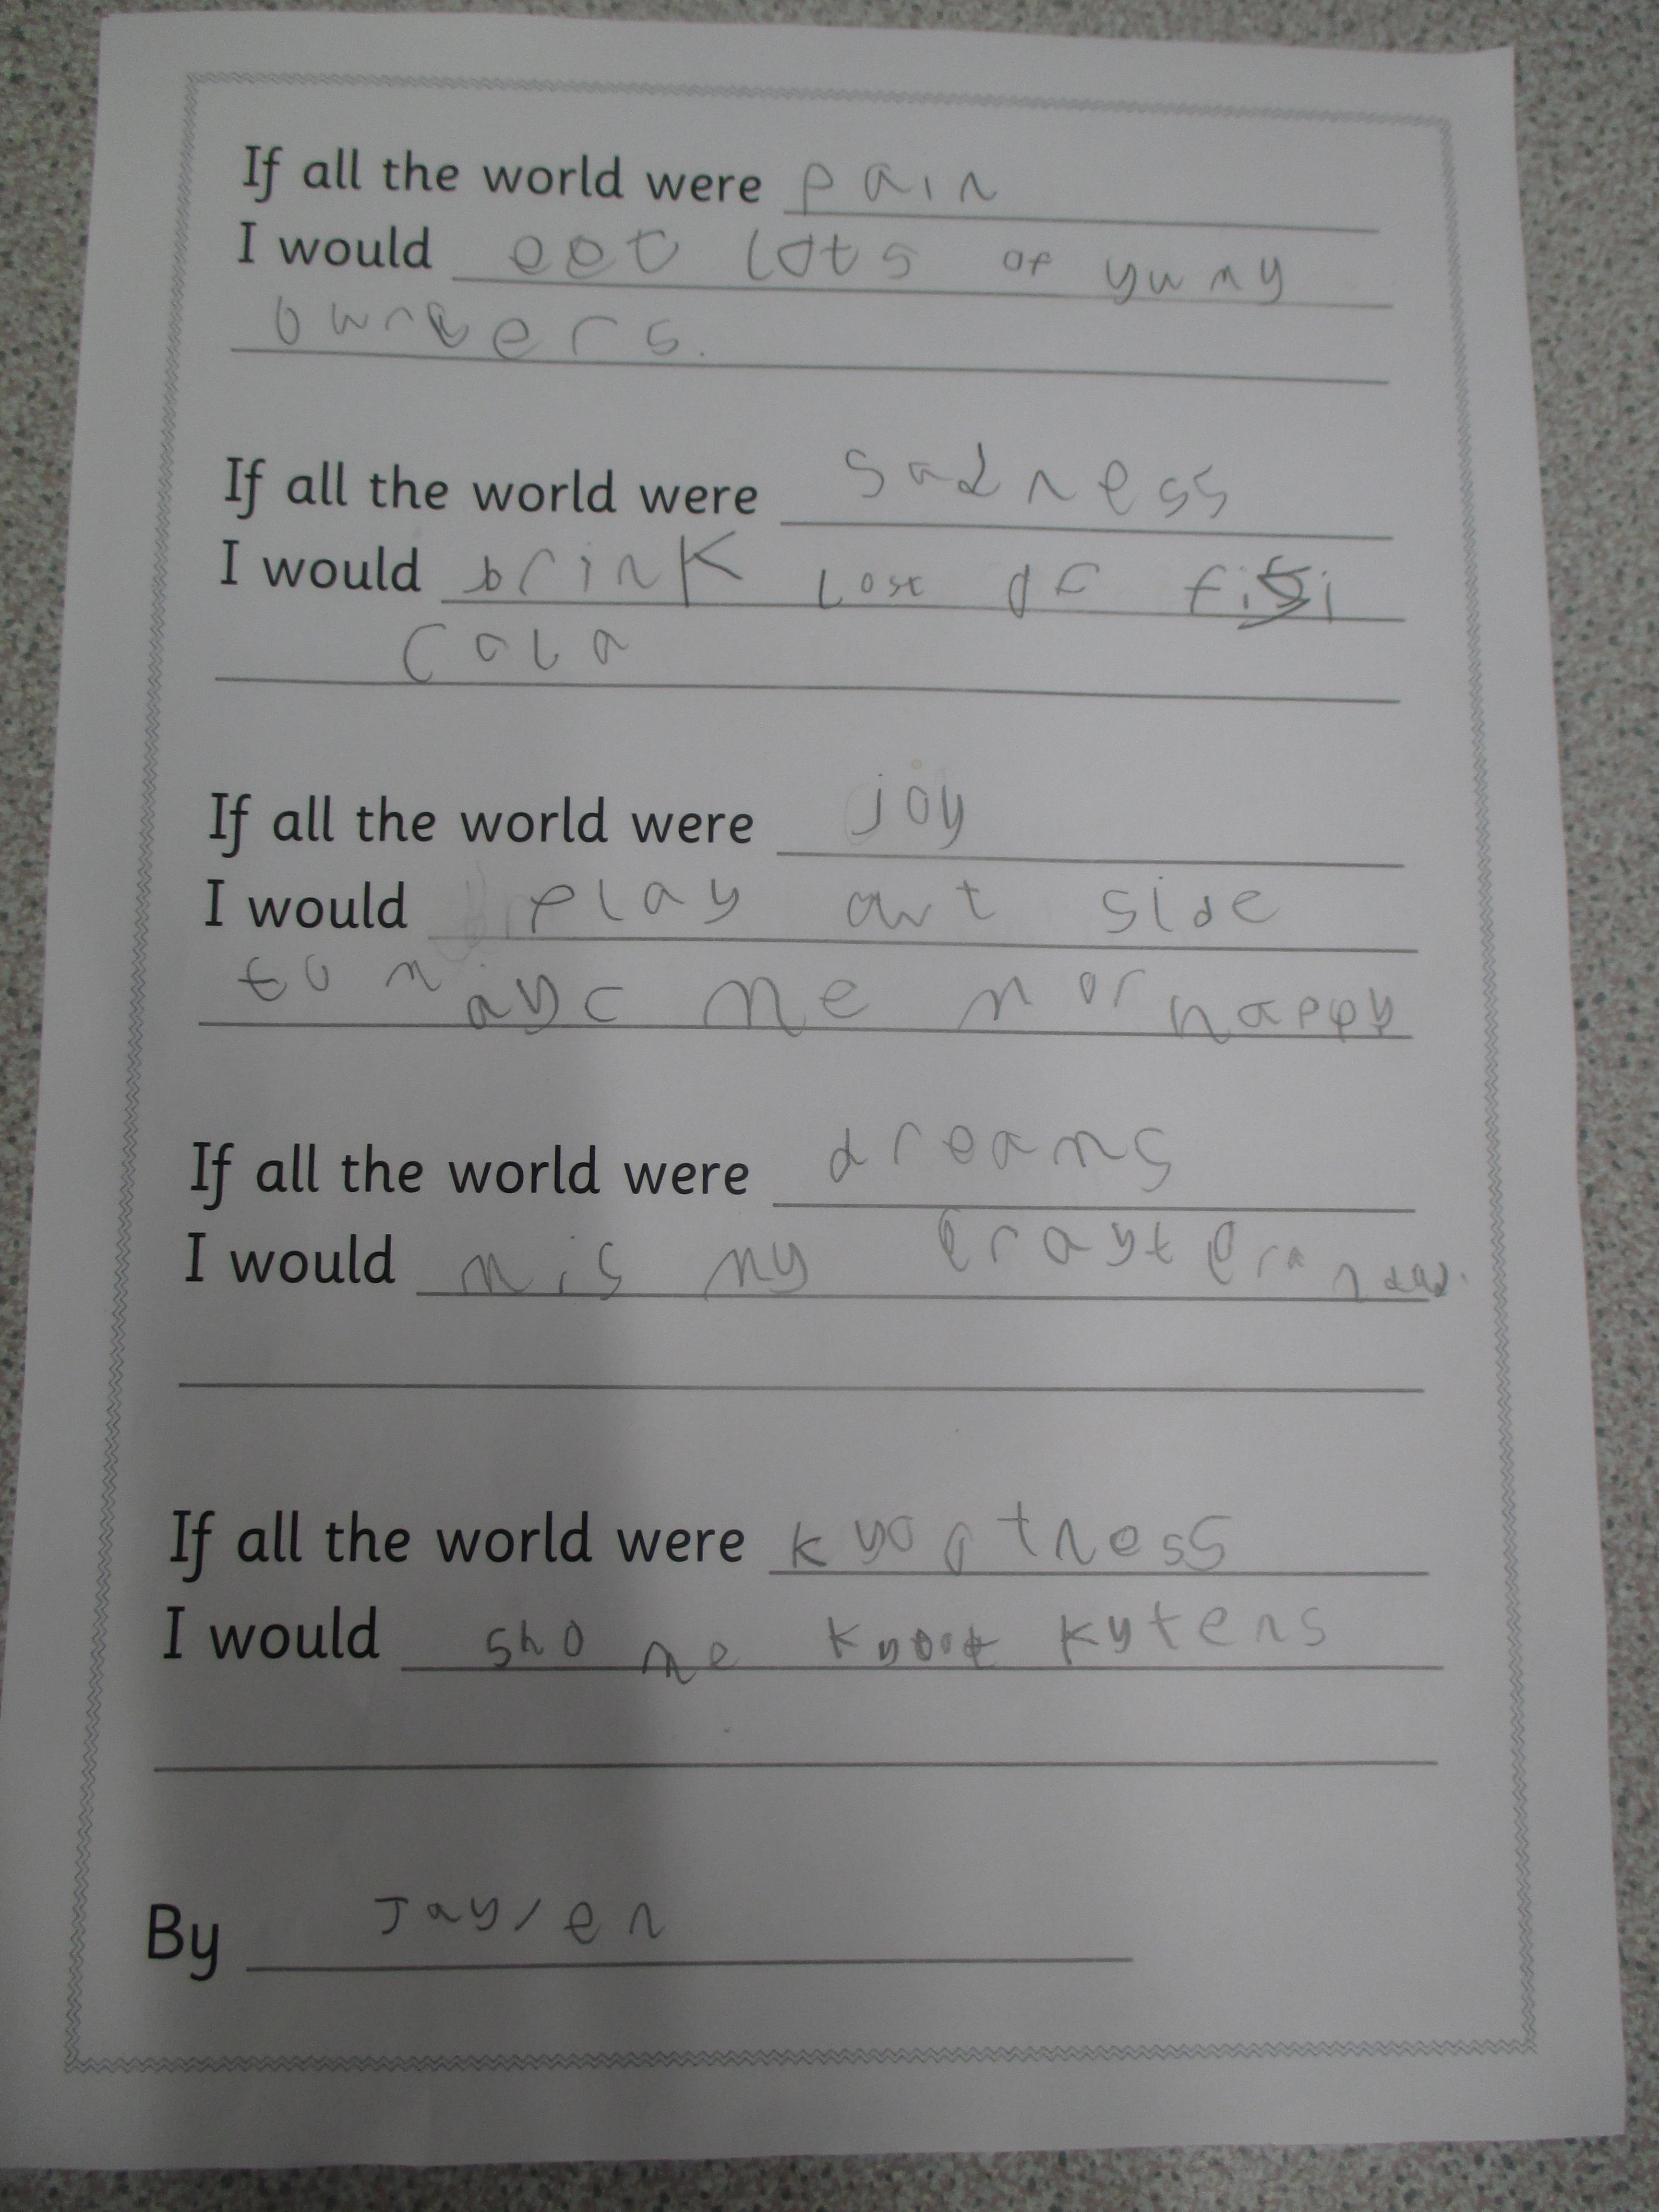 If all the world were pain
I would eet lots of yumy
burgers.
If all the world were sadness
I would brink lost of fisi
cola
If all the world were joy
I would play awt side
to myc me mor happy
If all the world were dreams
I would mis my grayt grandad.
If all the world were kyootness
I would sho me kyoot kytens
By Jayden